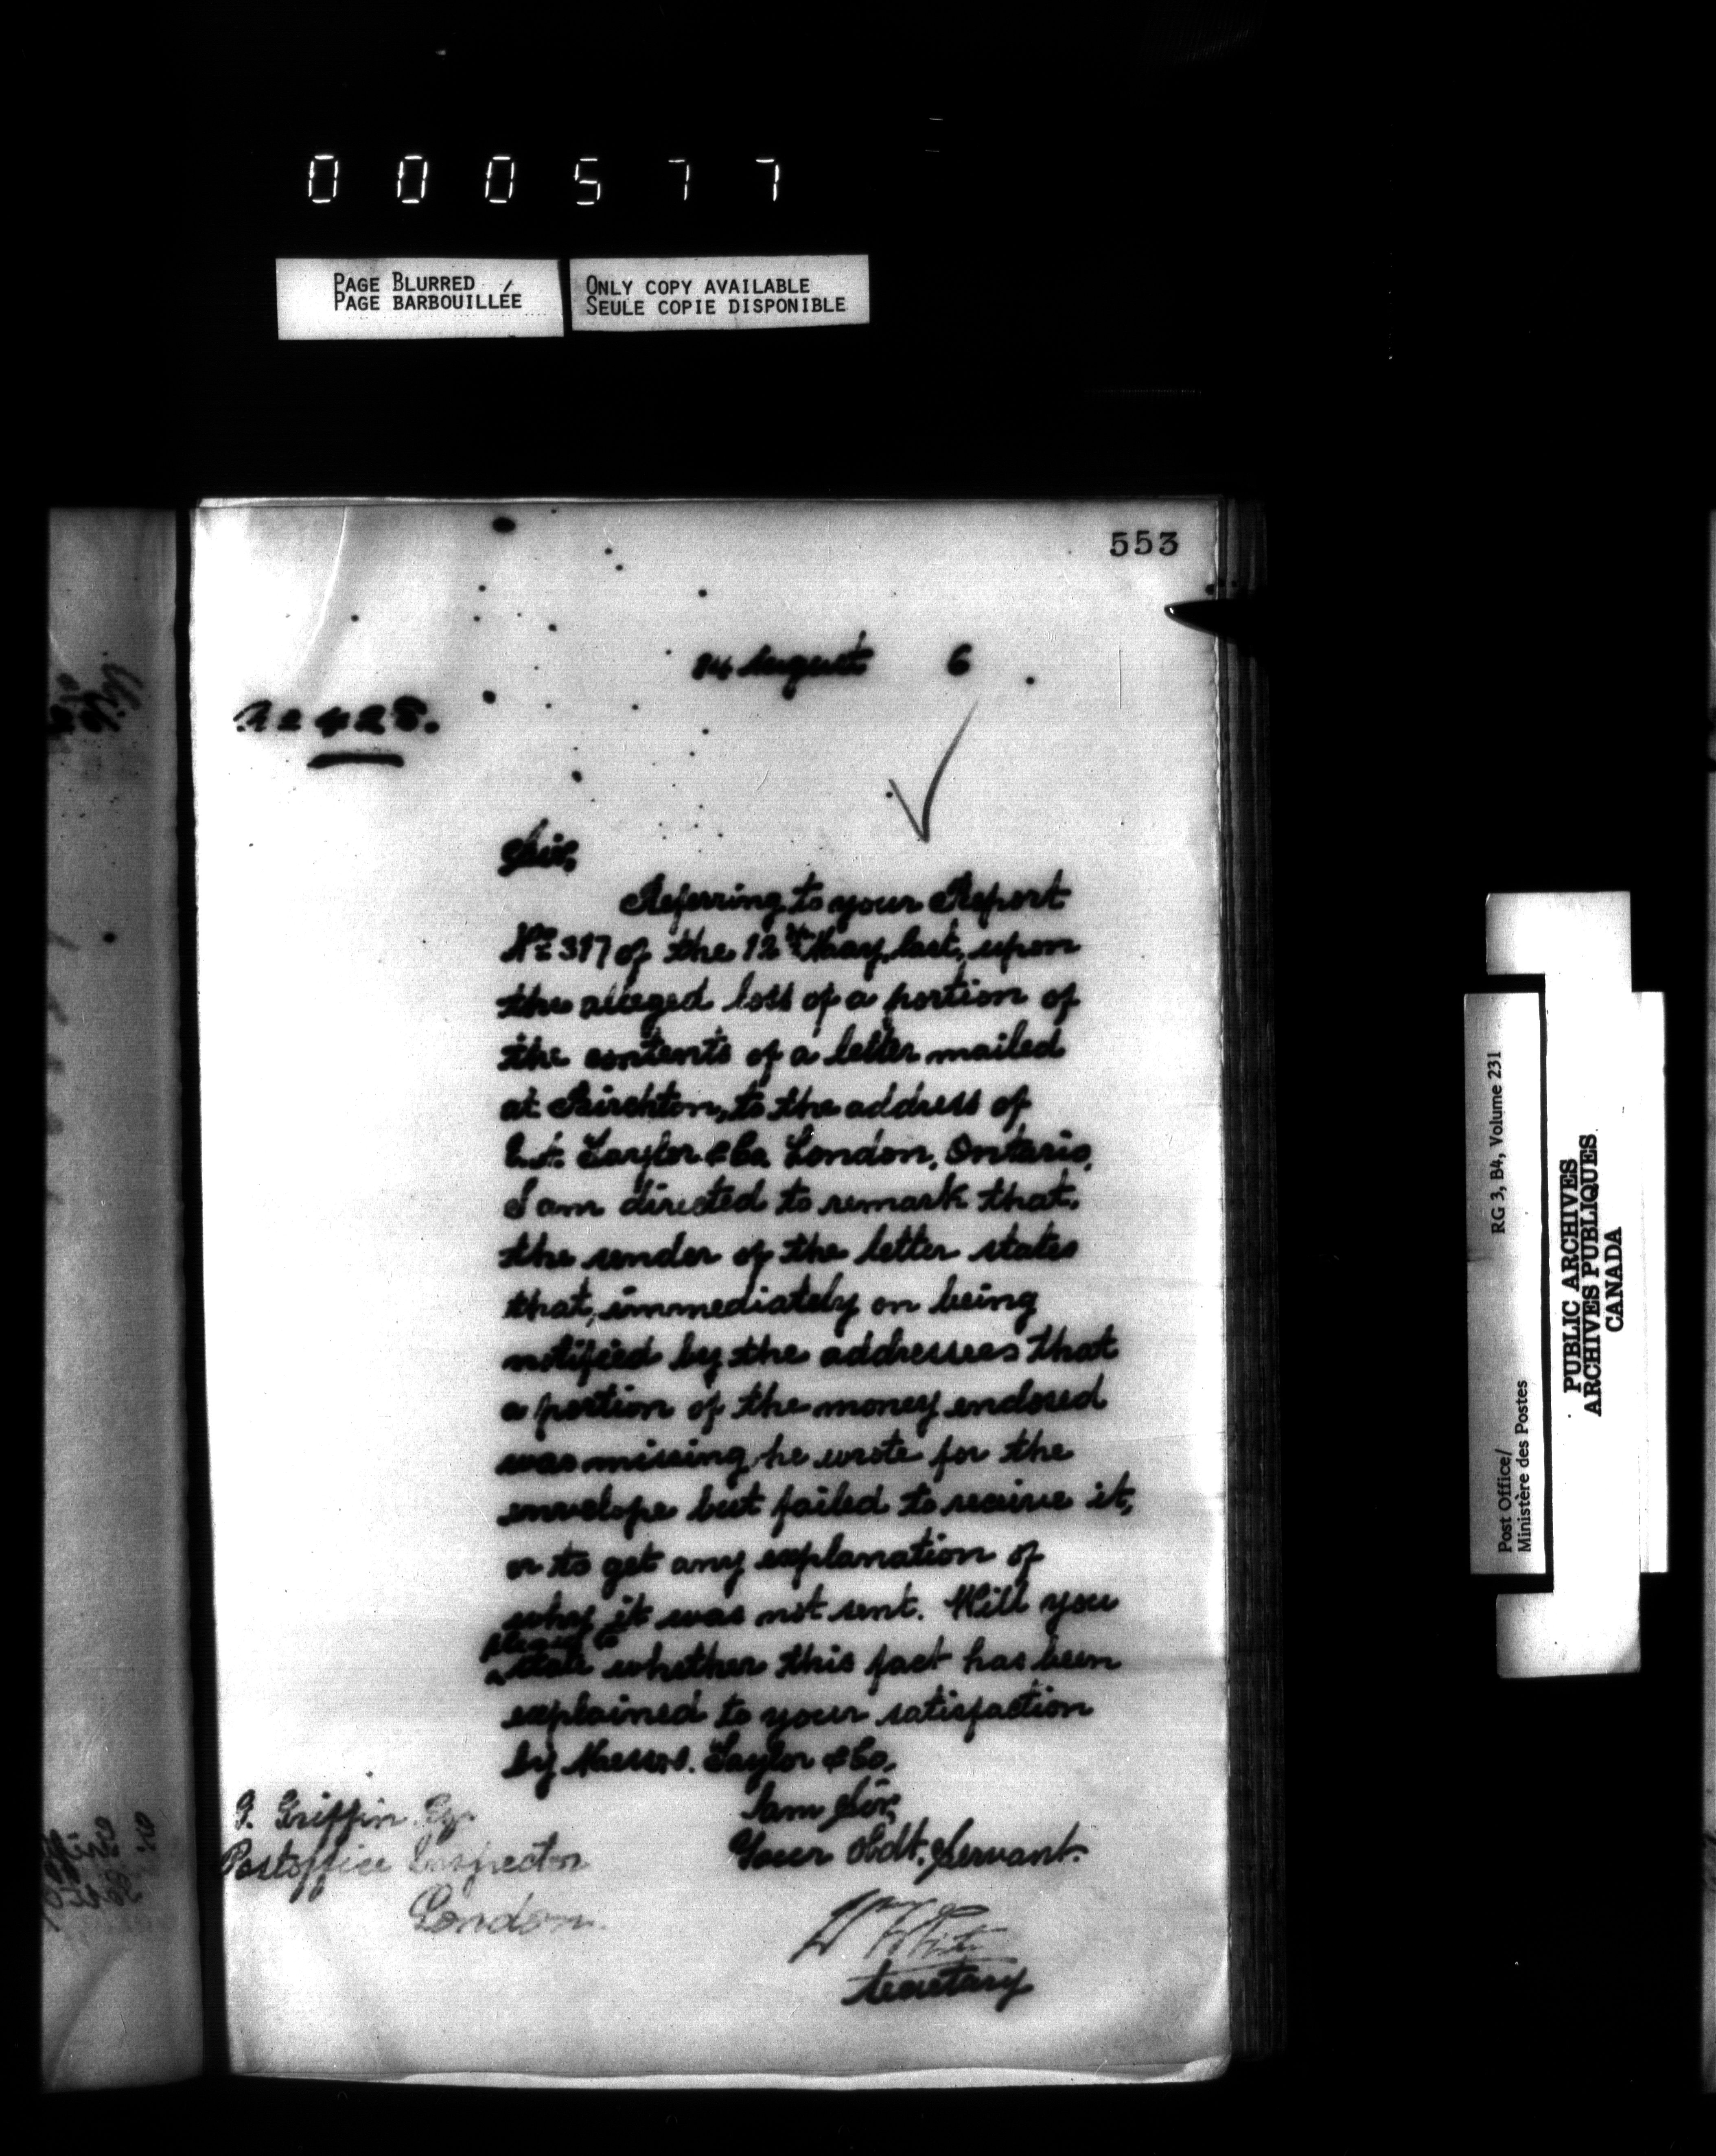 000577
PAGE BLURRED
PAGE BARBOUILLÉE
ONLY COPY AVAILABLE
SEULE COPIE DISPONIBLE
553
14 August 6
Sir,
Referring to your Report
No 317 of the 12th May, last, upon
the alleged loss of a portion of
the contents of a letter mailed
at Birchton, to the address of
Taylor & Co. London, Ontario,
I am directed to remark that,
the sender of the letter states
that, immediately on being
notified by the addressees that
a portion of the money enclosed
was missing, he wrote for the
envelope but failed to receive it,
or to get any explanation of
why it was not sent. Will you
please to
state whether this fact has been
explained to your satisfaction
by Messrs. Taylor & Co.
I am Sir,
Your Obdt. Servant.
Secretary
G. Griffin Esq.
Postoffice Inspector
London.
Post Office/
Ministère des Postes
RG 3, B4, Volume 231
PUBLIC ARCHIVES
ARCHIVES PUBLIQUES
CANADA